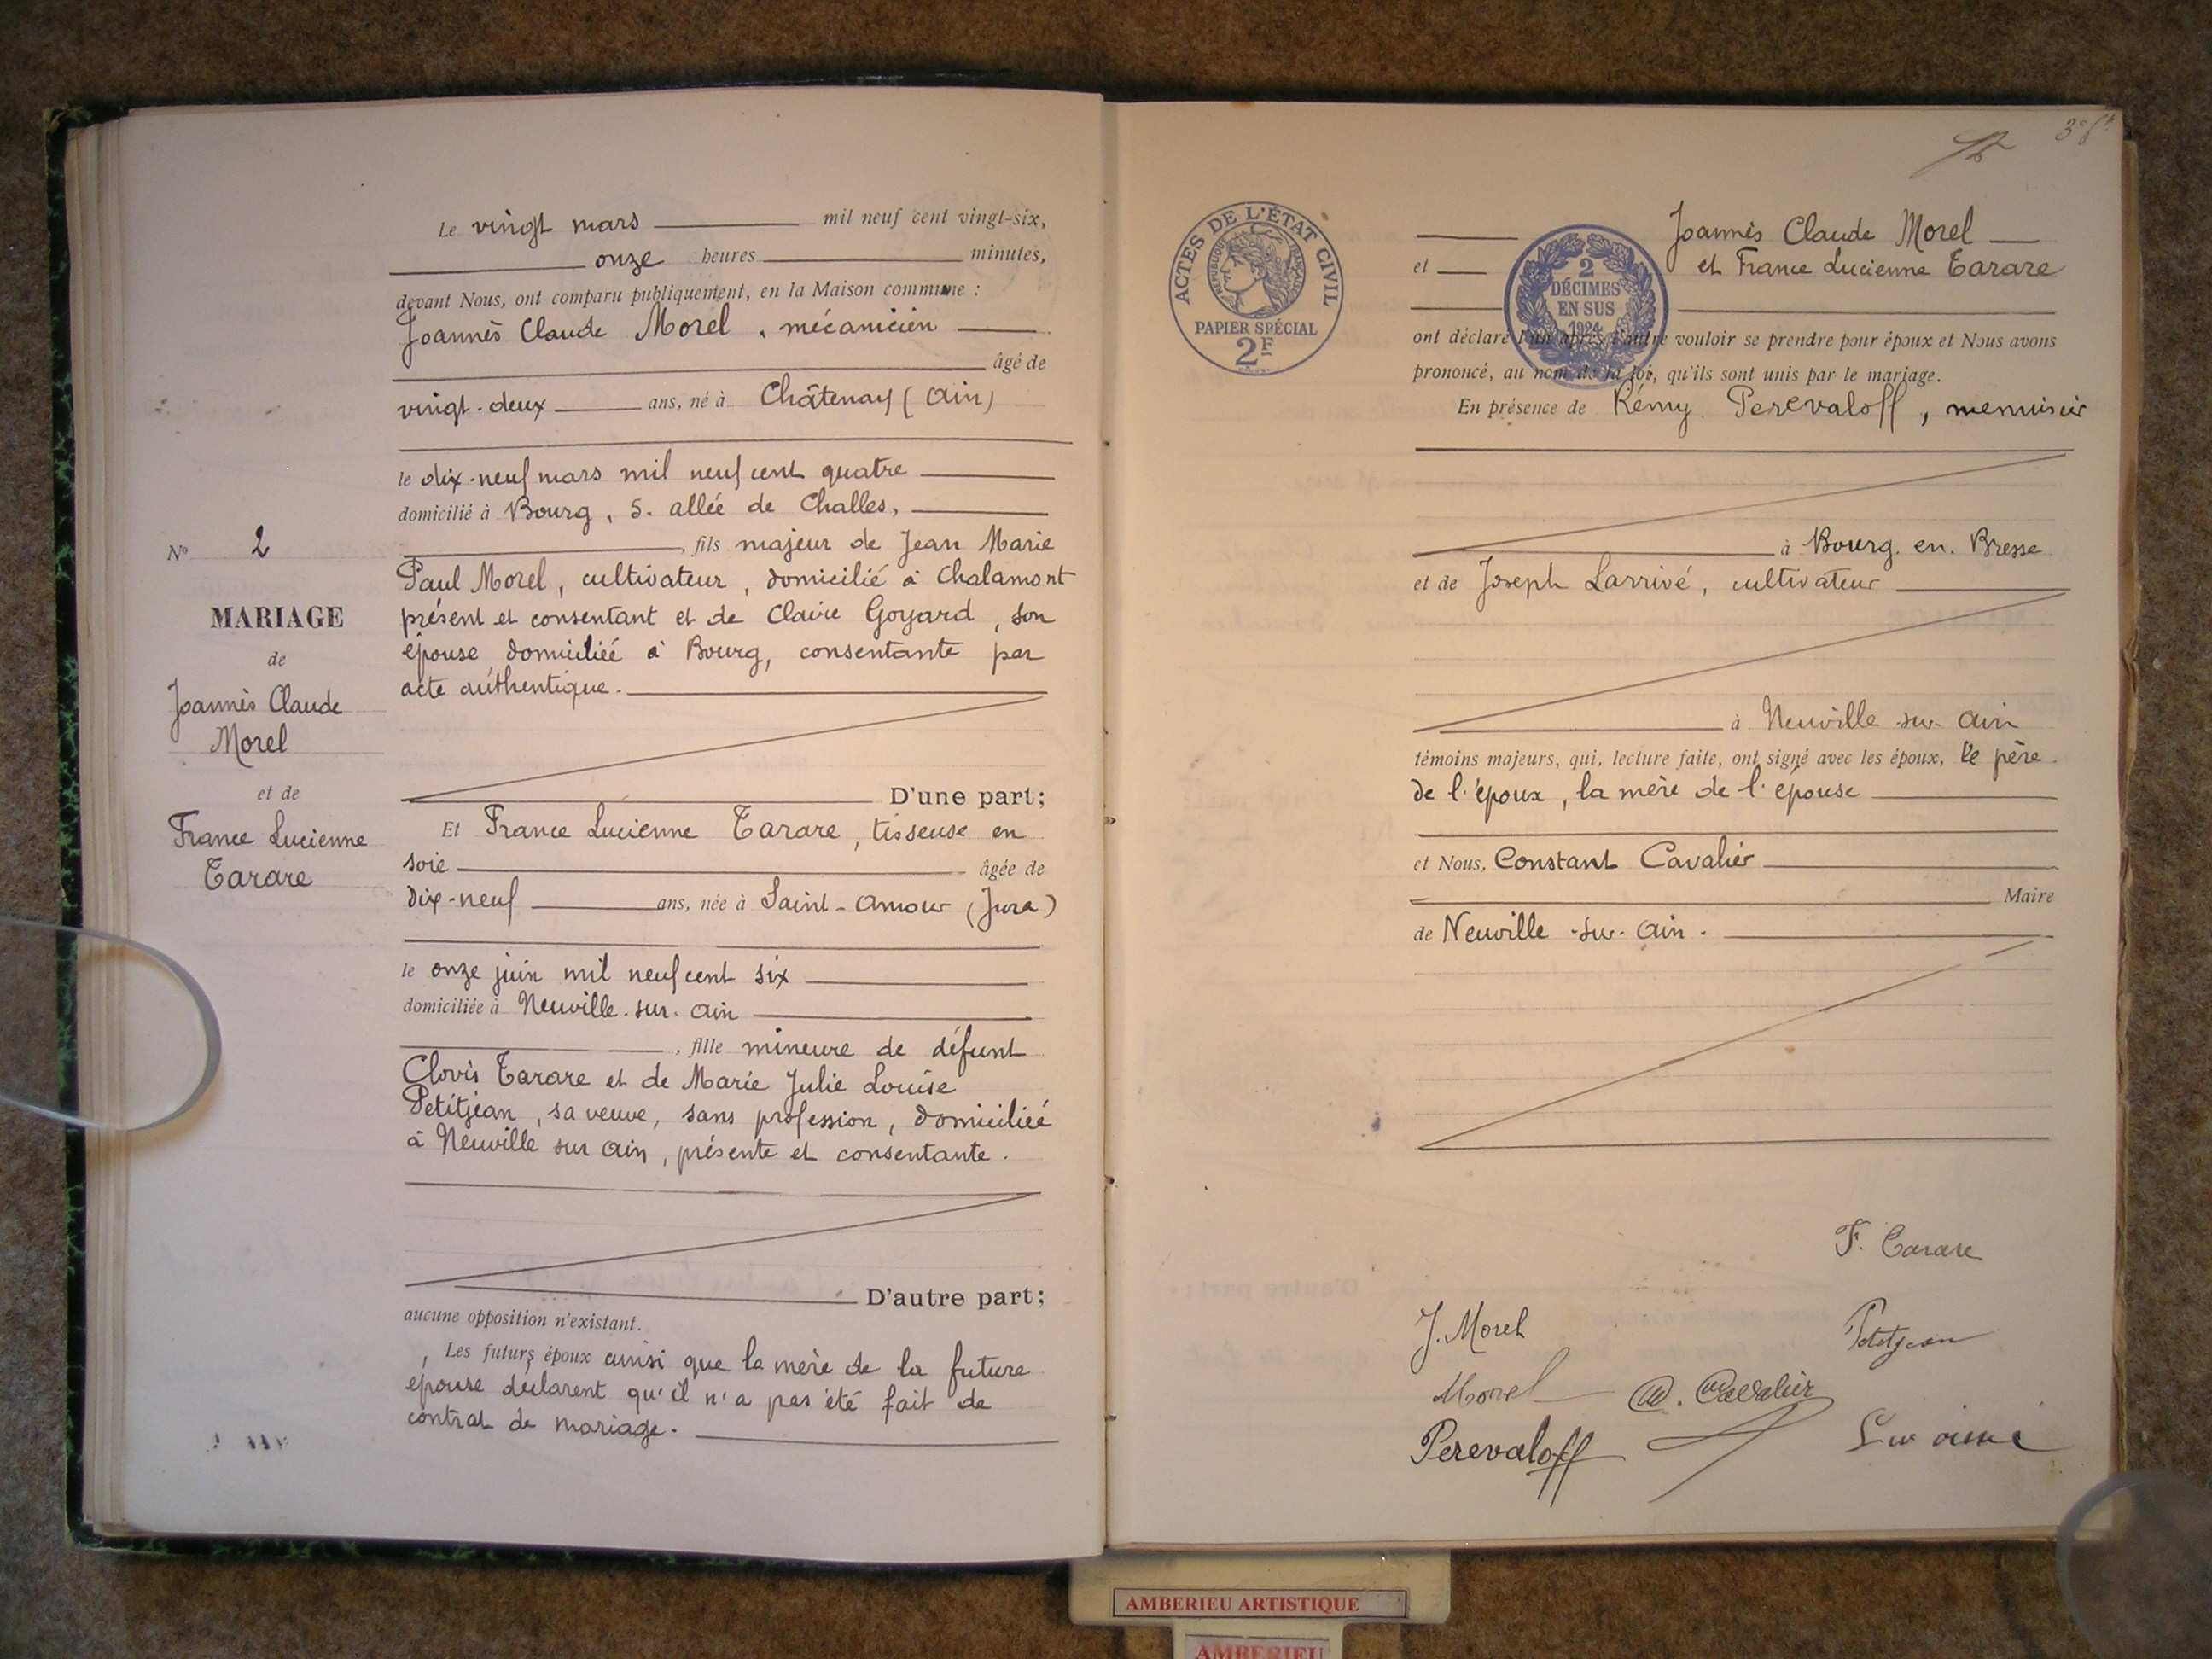 Le vingt mars mil neuf cent vingt-six,
onze heures minutes,
devant Nous, ont comparu publiquement, en la Maison commune :
Joannès Claude Morel, mécanicien
âgé de
vingt-deux ans, né à Châtenay (Ain)
le dix-neuf mars mil neuf cent quatre
domicilié à Bourg, 5. allée de Challes,
, fils majeur de Jean Marie
Paul Morel, cultivateur, domicilié à Chalamont
présent et consentant et de Claire Goyard, son
épouse domiciliée à Bourg, consentante par
acte authentique.
D'une part;
Et France Lucienne Tarare, tisseuse en
soie âgée de
dix-neuf ans, née à Saint-Amour (Jura)
le onze juin mil neuf cent six
domiciliée à Neuville-sur-Ain
, fille mineure de défunt
Clovis Tarare et de Marie Julie Louise
Petitjean, sa veuve, sans profession, domiciliée
à Neuville sur Ain, présente et consentante.
D'autre part;
aucune opposition n'existant.
Les futurs époux ainsi que la mère de la future
épouse déclarent qu'il n'a pas été fait de
contrat de mariage.
N° 2
MARIAGE
de
Joannès Claude
Morel
et de
France Lucienne
Tarare
ACTES DE L'ÉTAT CIVIL
RÉPUBLIQUE FRANÇAISE
PAPIER SPÉCIAL
2F
2
DÉCIMES
EN SUS
1924
Joannès Claude Morel
et et France Lucienne Tarare
ont déclaré l'un après l'autre vouloir se prendre pour époux et Nous avons
prononcé, au nom de la loi, qu'ils sont unis par le mariage.
En présence de Rémy Perevaloff, menuisier
à Bourg-en-Bresse
et de Joseph Larrivé, cultivateur
à Neuville-sur-Ain
témoins majeurs, qui, lecture faite, ont signé avec les époux, le père
de l'époux, la mère de l'épouse
et Nous, Constant Cavalier
Maire
de Neuville-sur-Ain.
F. Tarare
J. Morel
Petitjean
Morel
Cavalier
Perevaloff
AMBERIEU ARTISTIQUE
AMBERIEU